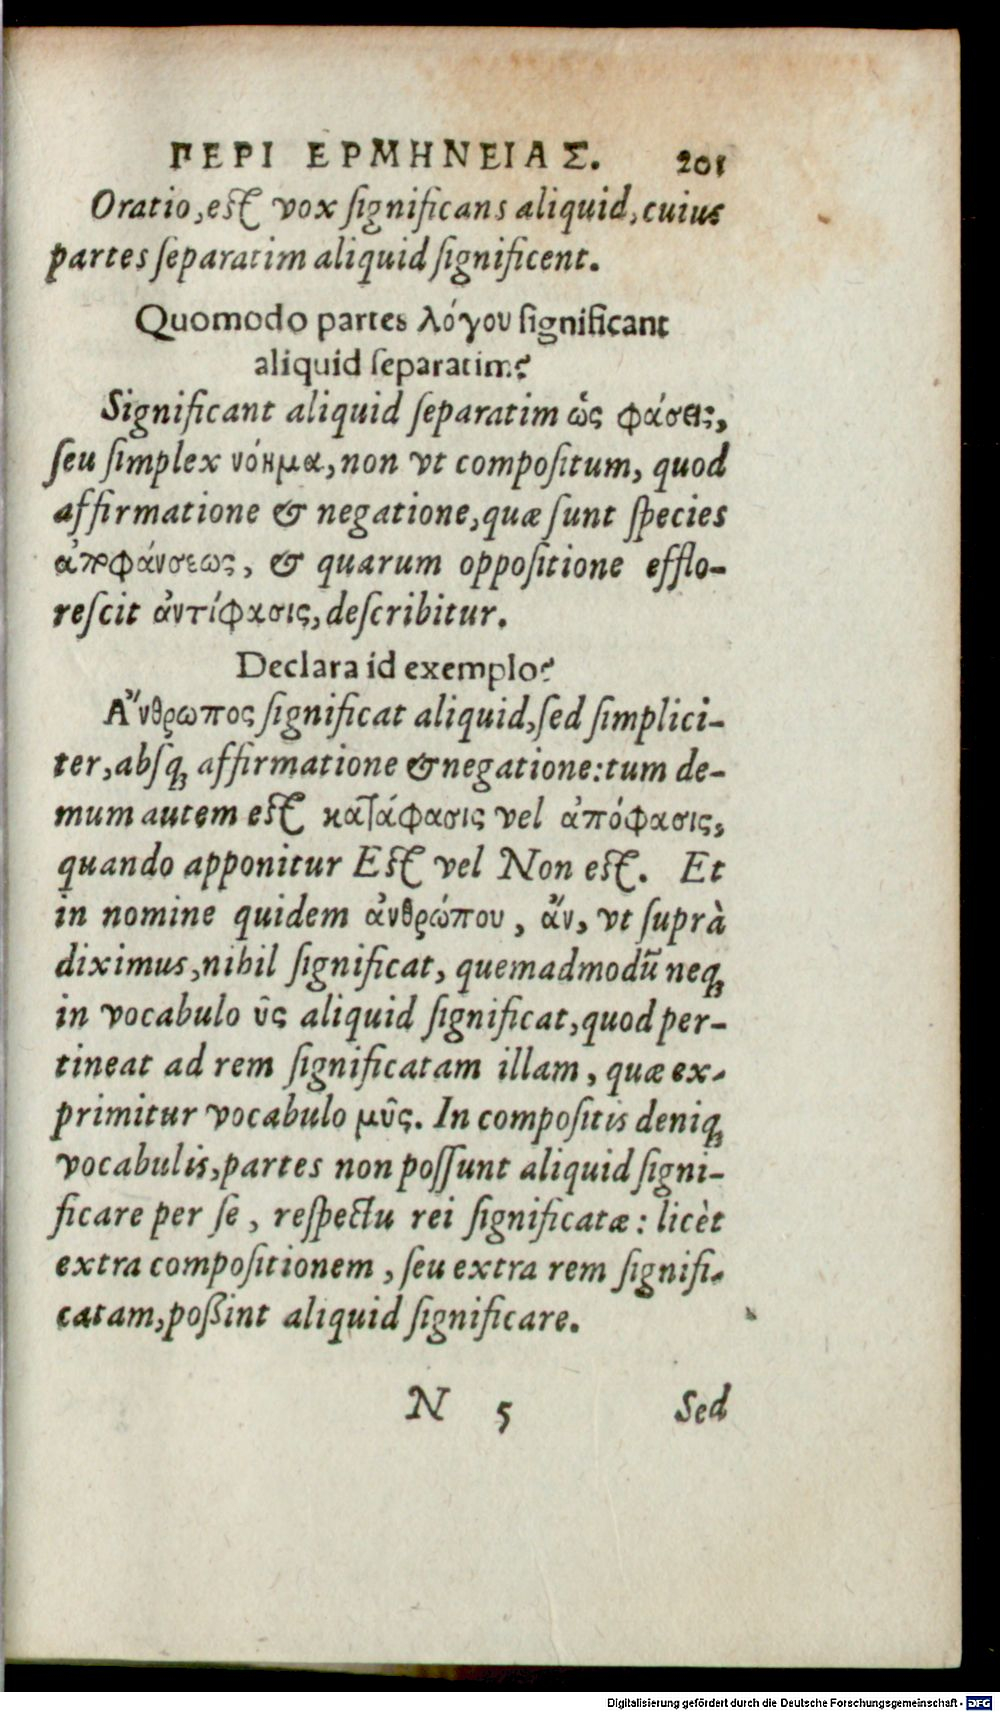 ΠΕΡΙ ΕΡΜΗΝΕΙΑΣ. 201
Oratio, est vox ſignificans aliquid, cuius
partes ſeparatim aliquid ſignificent.
Quomodo partes λόγου ſignificant
aliquid ſeparatim?
Significant aliquid ſeparatim ὡς φάσεις,
ſeu ſimplex νόημα, non vt compoſitum, quod
affirmatione & negatione, quæ ſunt ſpecies
ἀποφάνσεως, & quarum oppoſitione efflo-
reſcit ἀντίφασις, deſcribitur.
Declara id exemplo?
Ἄνθρωπος ſignificat aliquid, ſed ſimplici-
ter, abſq; affirmatione & negatione: tum de-
mum autem est κατάφασις vel ἀπόφασις,
quando apponitur Est vel Non est. Et
in nomine quidem ἀνθρώπου, ἄν, vt ſuprà
diximus, nihil ſignificat, quemadmodū neq;
in vocabulo ὗς aliquid ſignificat, quod per-
tineat ad rem ſignificatam illam, quæ ex-
primitur vocabulo μῦς. In compoſitis deniq;
vocabulis, partes non poſſunt aliquid ſigni-
ficare per ſe, reſpectu rei ſignificatæ: licèt
extra compoſitionem, ſeu extra rem ſignifi-
catam, poßint aliquid ſignificare.
N 5 Sed
Digitalisierung gefördert durch die Deutsche Forschungsgemeinschaft - DFG